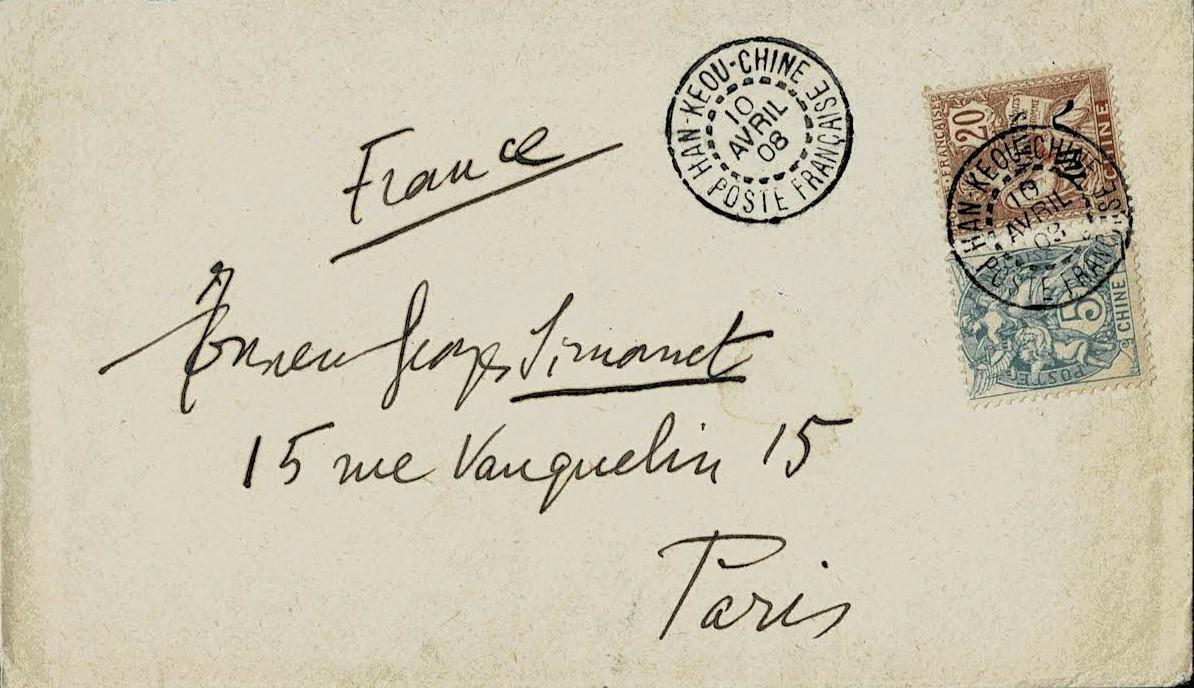 HAN-KEOU-CHINE
10
AVRIL
08
POSTE FRANÇAISE
20
FRANÇAISE
CHINE
HAN-KEOU-CHINE
10
AVRIL
08
POSTE FRANÇAISE
5
CHINE
POSTE
France
Monsieur Georges Simonet
15 rue Vauquelin 15
Paris